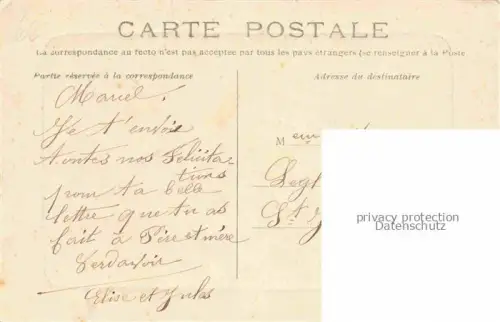 CARTE POSTALE
La correspondance au recto n'est pas acceptée par tous les pays étrangers (se renseigner à la Poste
Partie réservée à la correspondance
Adresse du destinataire
Marcel.
Je t'envoie
toutes nos Félicita-
tions
pour ta belle
lettre que tu as
fait à Père et mère
Elise et Jules
M
St
privacy protection
Datenschutz